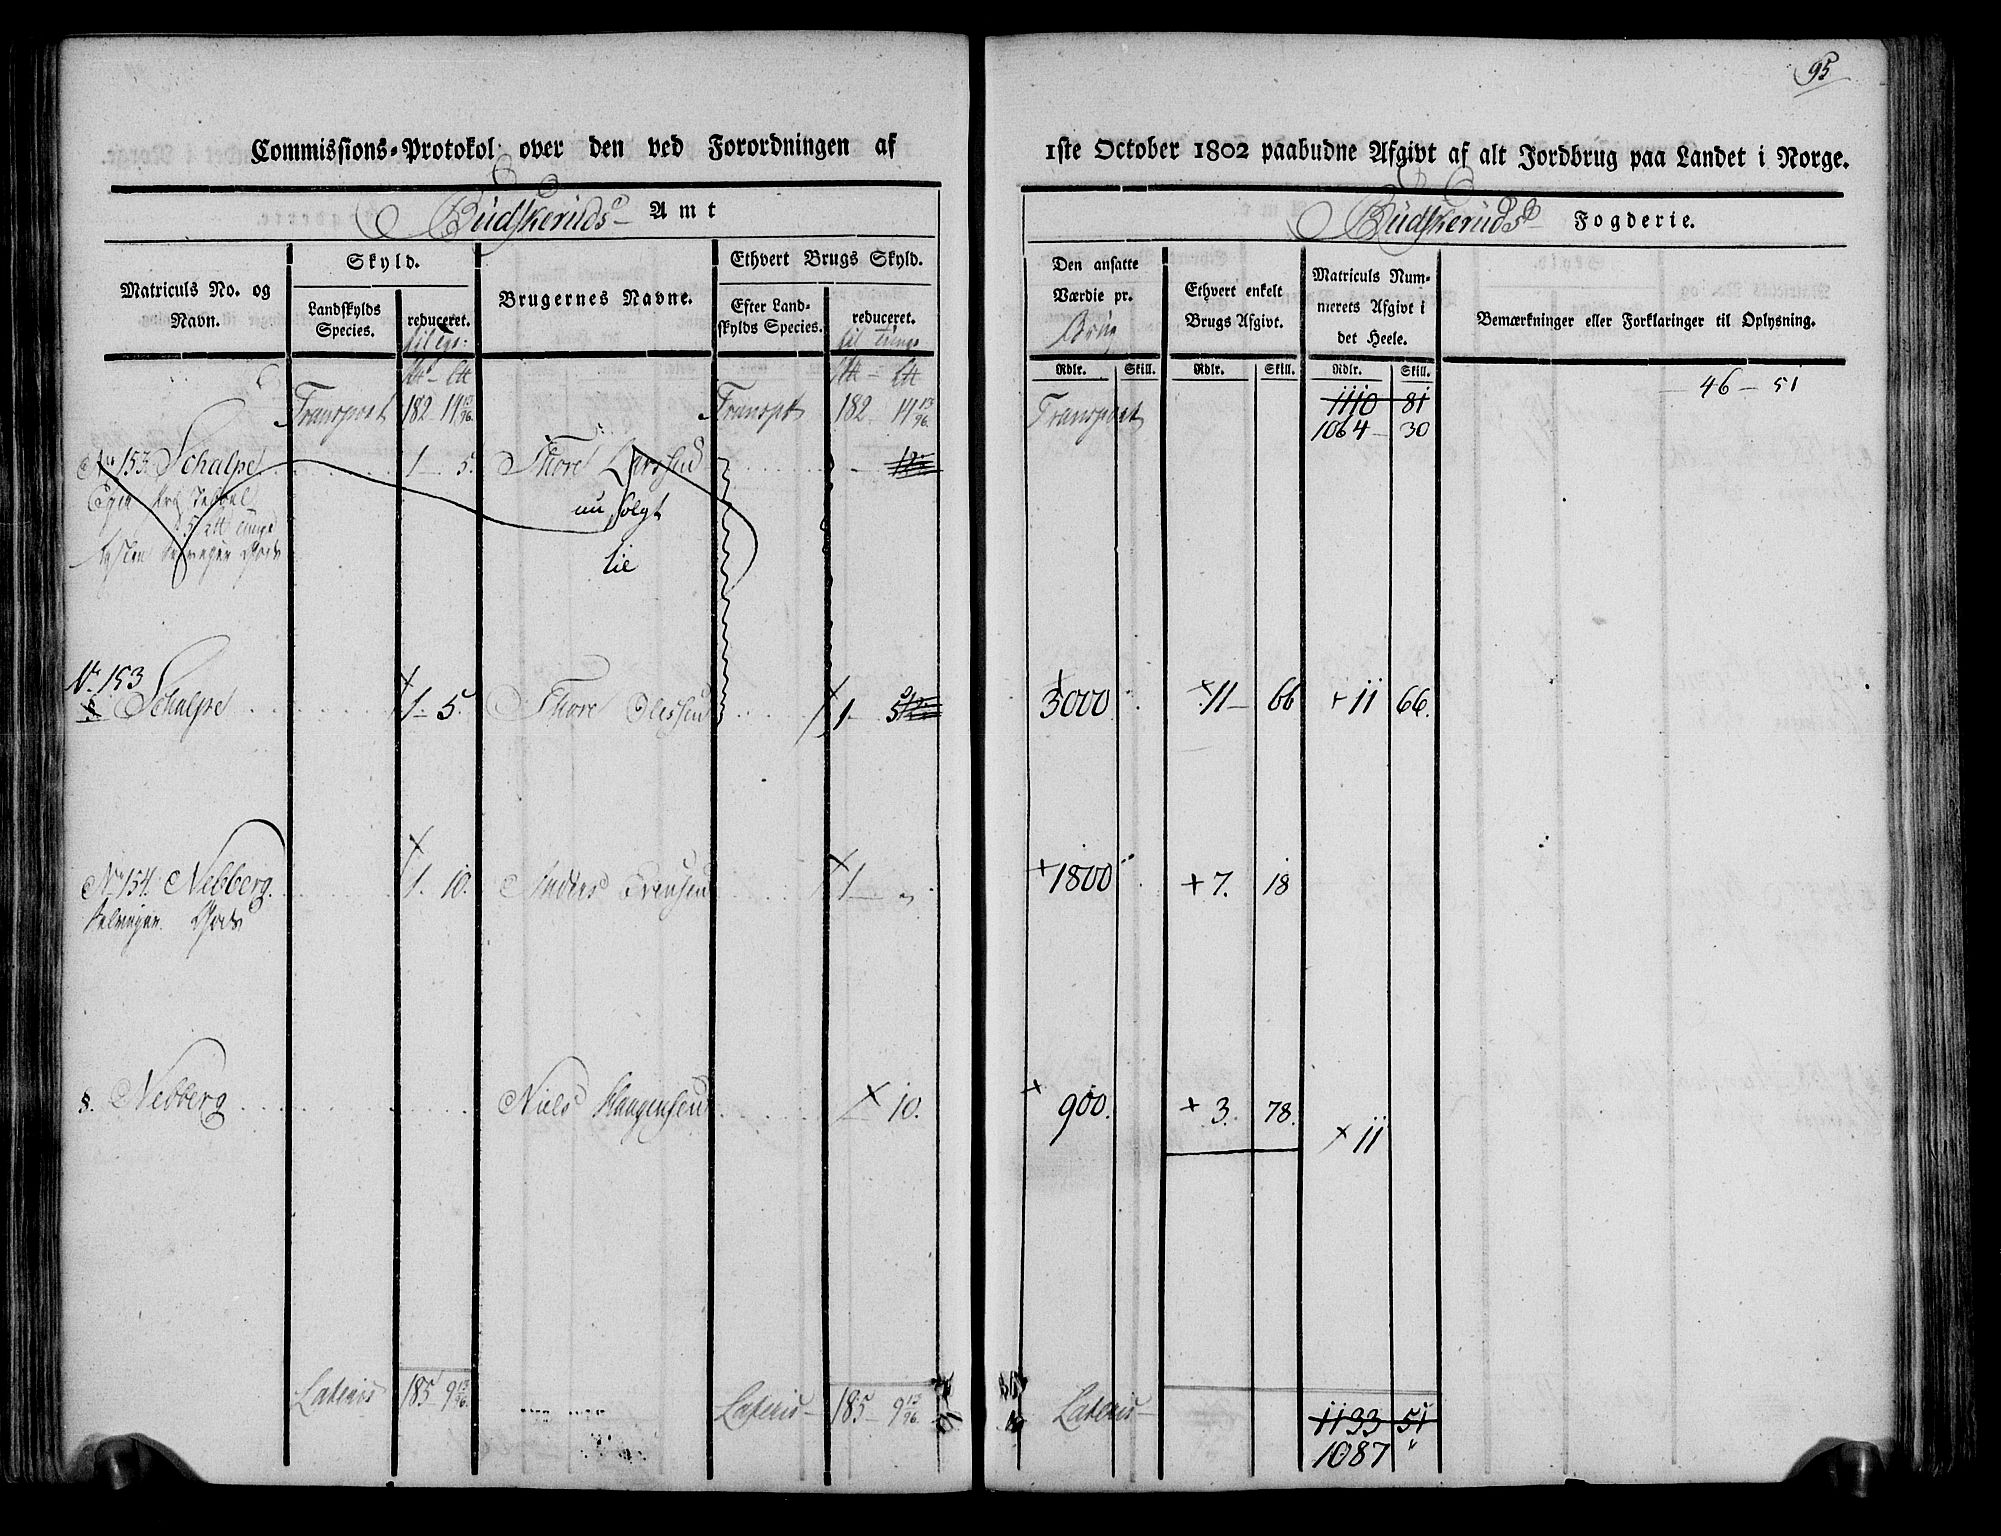 95
Commissions-Protokol over den ved Forordningen af
1ste October 1802 paabudne Afgivt af alt Jordbrug paa Landet i Norge.
Budskeruds Amt
Budskeruds Fogderie.
Matriculs No. og Navn.
Skyld.
Landskylds Species.
reduceret.
Brugernes Navne.
Ethvert Brugs Skyld.
Efter Landskylds Species.
reduceret.
Den ansatte Værdie pr.
Brug
Ethvert enkelt Brugs Afgivt.
Matriculs Nummerets Afgivt i det Heele.
Bemærkninger eller Forklaringer til Oplysning.
Rdlr. Skill. Rdlr. Skill. Rdlr. Skill.
Transport 182 - 14 13/96 Transpt 182 14 13/96 Transport 1110 81 46 - 51
1064 - 30
No 153. Schalpe 1 - 5. Thore Larssen
nu solgt
til
No 153
§ Schalpe 1 - 5. Thore Olessen 1. 5 3000 11 - 66 + 11 66.
No 154. Nebberg. 1. 10. Anders Evensen 1 - „ + 1800 + 7. 18
Selveyer Gods
§. Nebberg Niels Haagensen 10. + 900. + 3. 78.
+ 11
Lateris 185 - 9 13/96 Lateris - 185 - 9 13/96 Lateris - 1133 51
1087 "